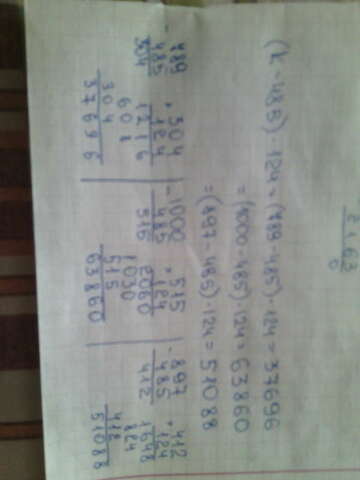 (k - 485) · 124 = (789 - 485) · 124 = 37696
= (1000 - 485) · 124 = 63860
= (897 - 485) · 124 = 51088
- 789 · 304 - 1000 · 515 - 897 · 412
485 124 485 124 485 124
304 1216 515 2060 412 1648
608 1030 824
304 515 412
37696 63860 51088